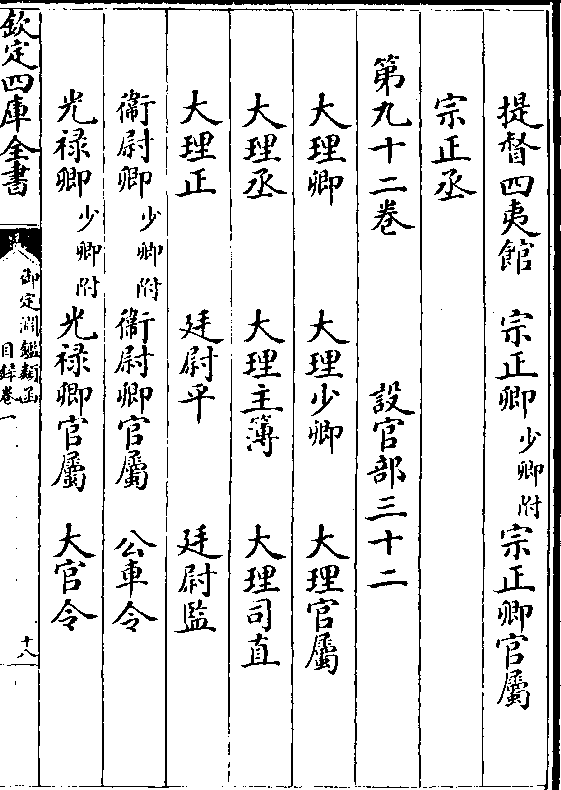 提督四夷館　宗正卿少卿附　宗正卿官屬
宗正丞
第九十二卷　設官部三十二
大理卿　大理少卿　大理官屬
大理丞　大理主簿　大理司直
大理正　廷尉平　廷尉監
衞尉卿少卿附　衞尉卿官屬　公車令
光祿卿少卿附　光祿卿官屬　大官令
欽定四庫全書
御定淵鑑類函
目録卷一
十八